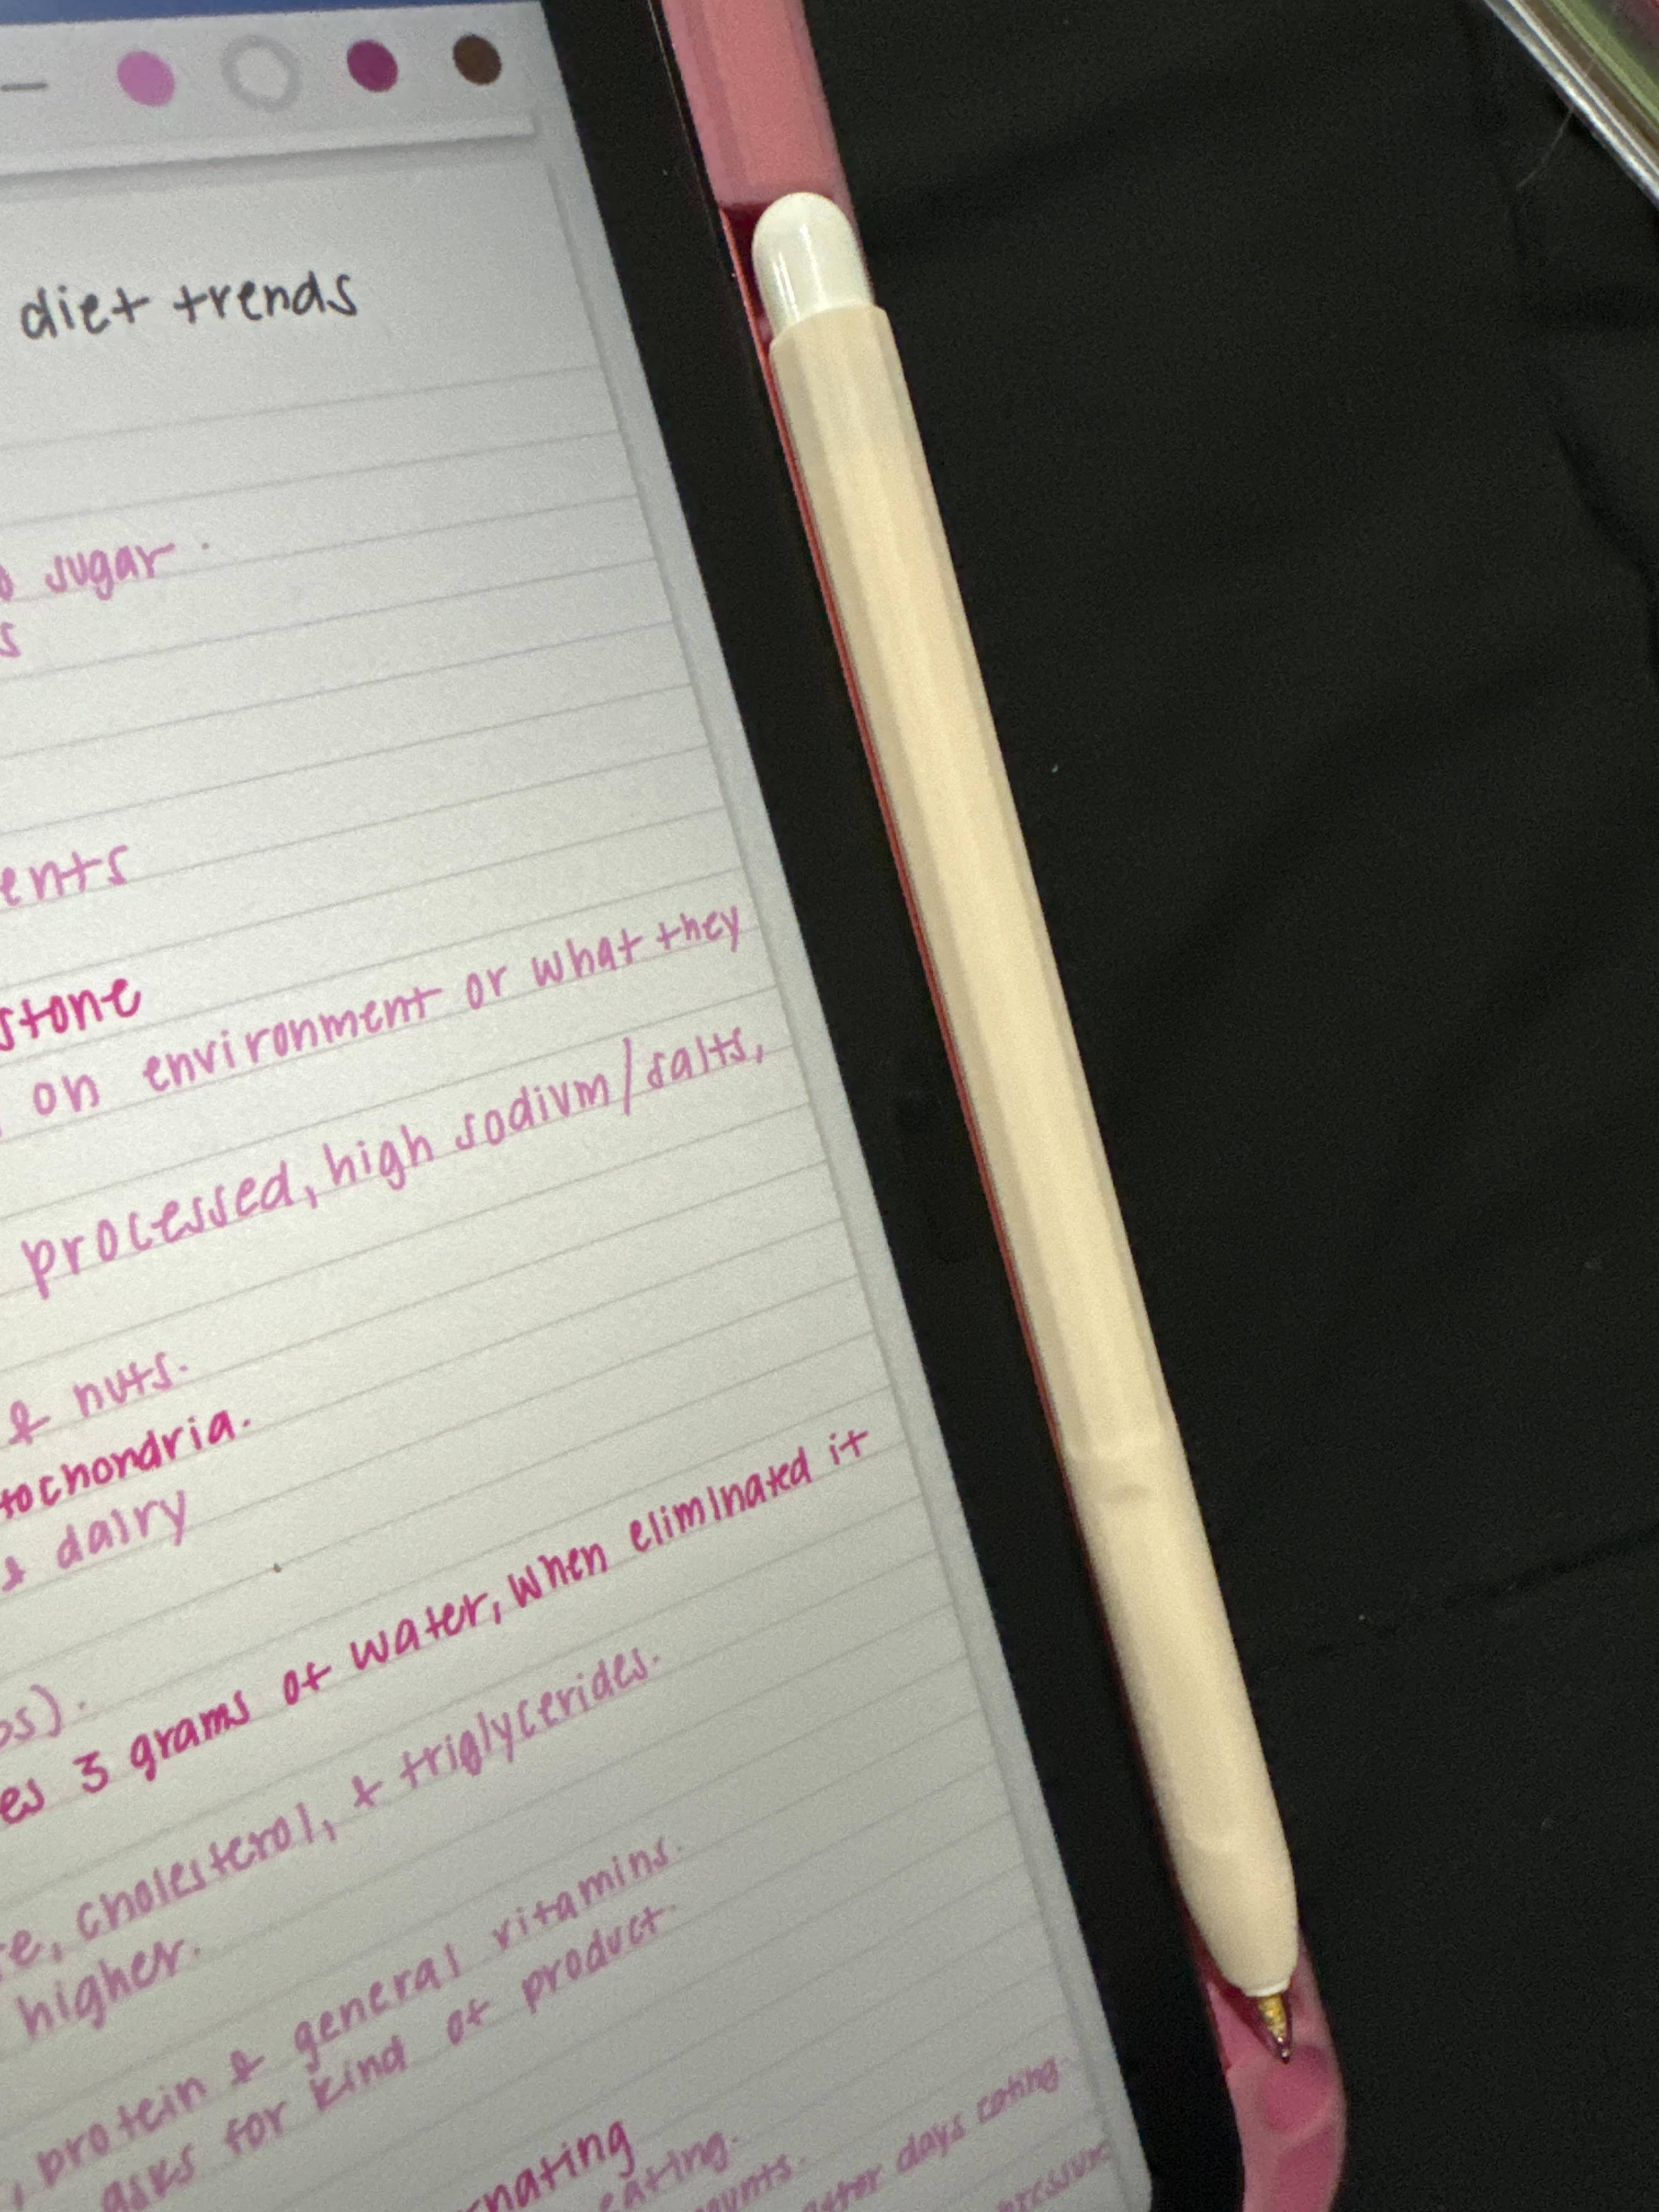 diet trends
sugar.
s
ents
stone
on environment or what they
processed, high sodium/salts,
& nuts.
tochondria.
& dairy
os).
es 3 grams of water, when eliminated it
e, cholesterol, & triglycerides.
higher.
, protein & general vitamins.
asks for kind of product.
nating
eating.
after days eating
pressure